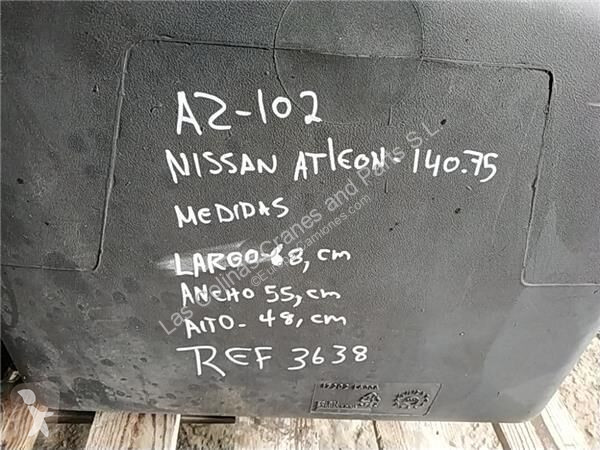 AZ-102
NISSAN ATLEON. 140.75
MEDIDAS
LARGO-68, cm
ANCHO 55, cm
ALTO- 48, cm
REF 3638
Las Colinas Cranes and Parts S.L.